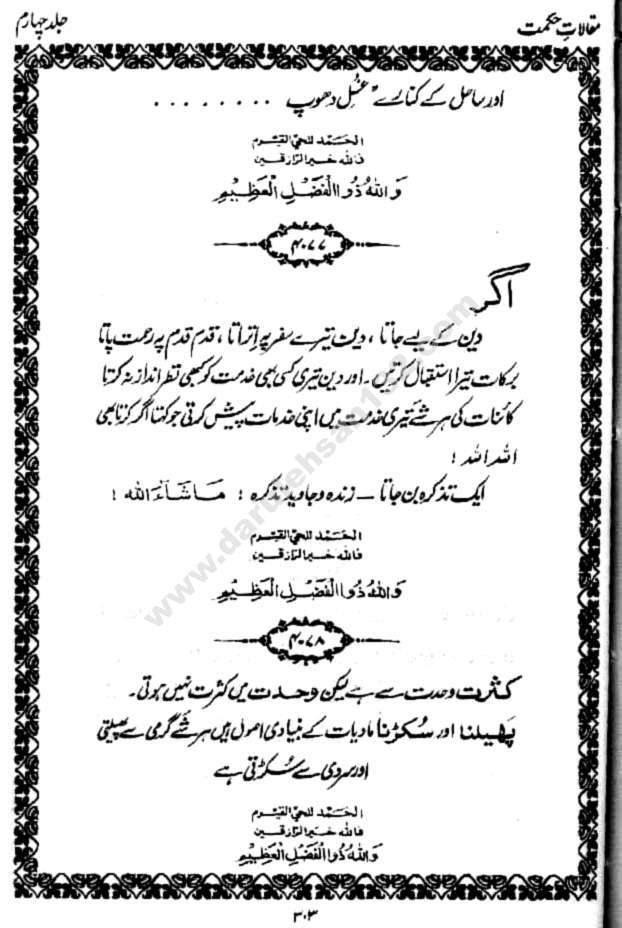 مقالاتِ حکمت
جلد چہارم
اور ساحل کے کنارے "غسلِ دھوپ ........
الحَمد للحيّ القيّوم
فالله خير الرّازقين
وَاللهُ ذُو الْفَضْلِ الْعَظِيْمِ
۴۰۷۷
اگر
دین کے لیے جاتا، دین تیرے سفر پہ اِتراتا، قدم قدم پہ رحمت پاتا
برکات تیرا استقبال کرتیں۔ اور دین تیری کسی بھی خدمت کو کبھی نظر انداز نہ کرتا
کائنات کی ہر شئے تیری خدمت میں اپنی خدمات پیش کرتی جو کہتا اگر کرتا بھی
اللہ اللہ!
ایک تذکرہ بن جاتا — زندہ و جاوید تذکرہ! مَا شَاءَ اللہ!
الحَمد للحيّ القيّوم
فالله خير الرّازقين
وَاللهُ ذُو الْفَضْلِ الْعَظِيْمِ
۴۰۷۸
کثرت وحدت سے ہے لیکن وحدت میں کثرت نہیں ہوتی۔
پھیلنا اور سُکڑنا مادیات کے بنیادی اصول ہیں ہر شئے گرمی سے پھیلتی
اور سردی سے سُکڑتی ہے
الحَمد للحيّ القيّوم
فالله خير الرّازقين
وَاللهُ ذُو الْفَضْلِ الْعَظِيْمِ
۳۰۳